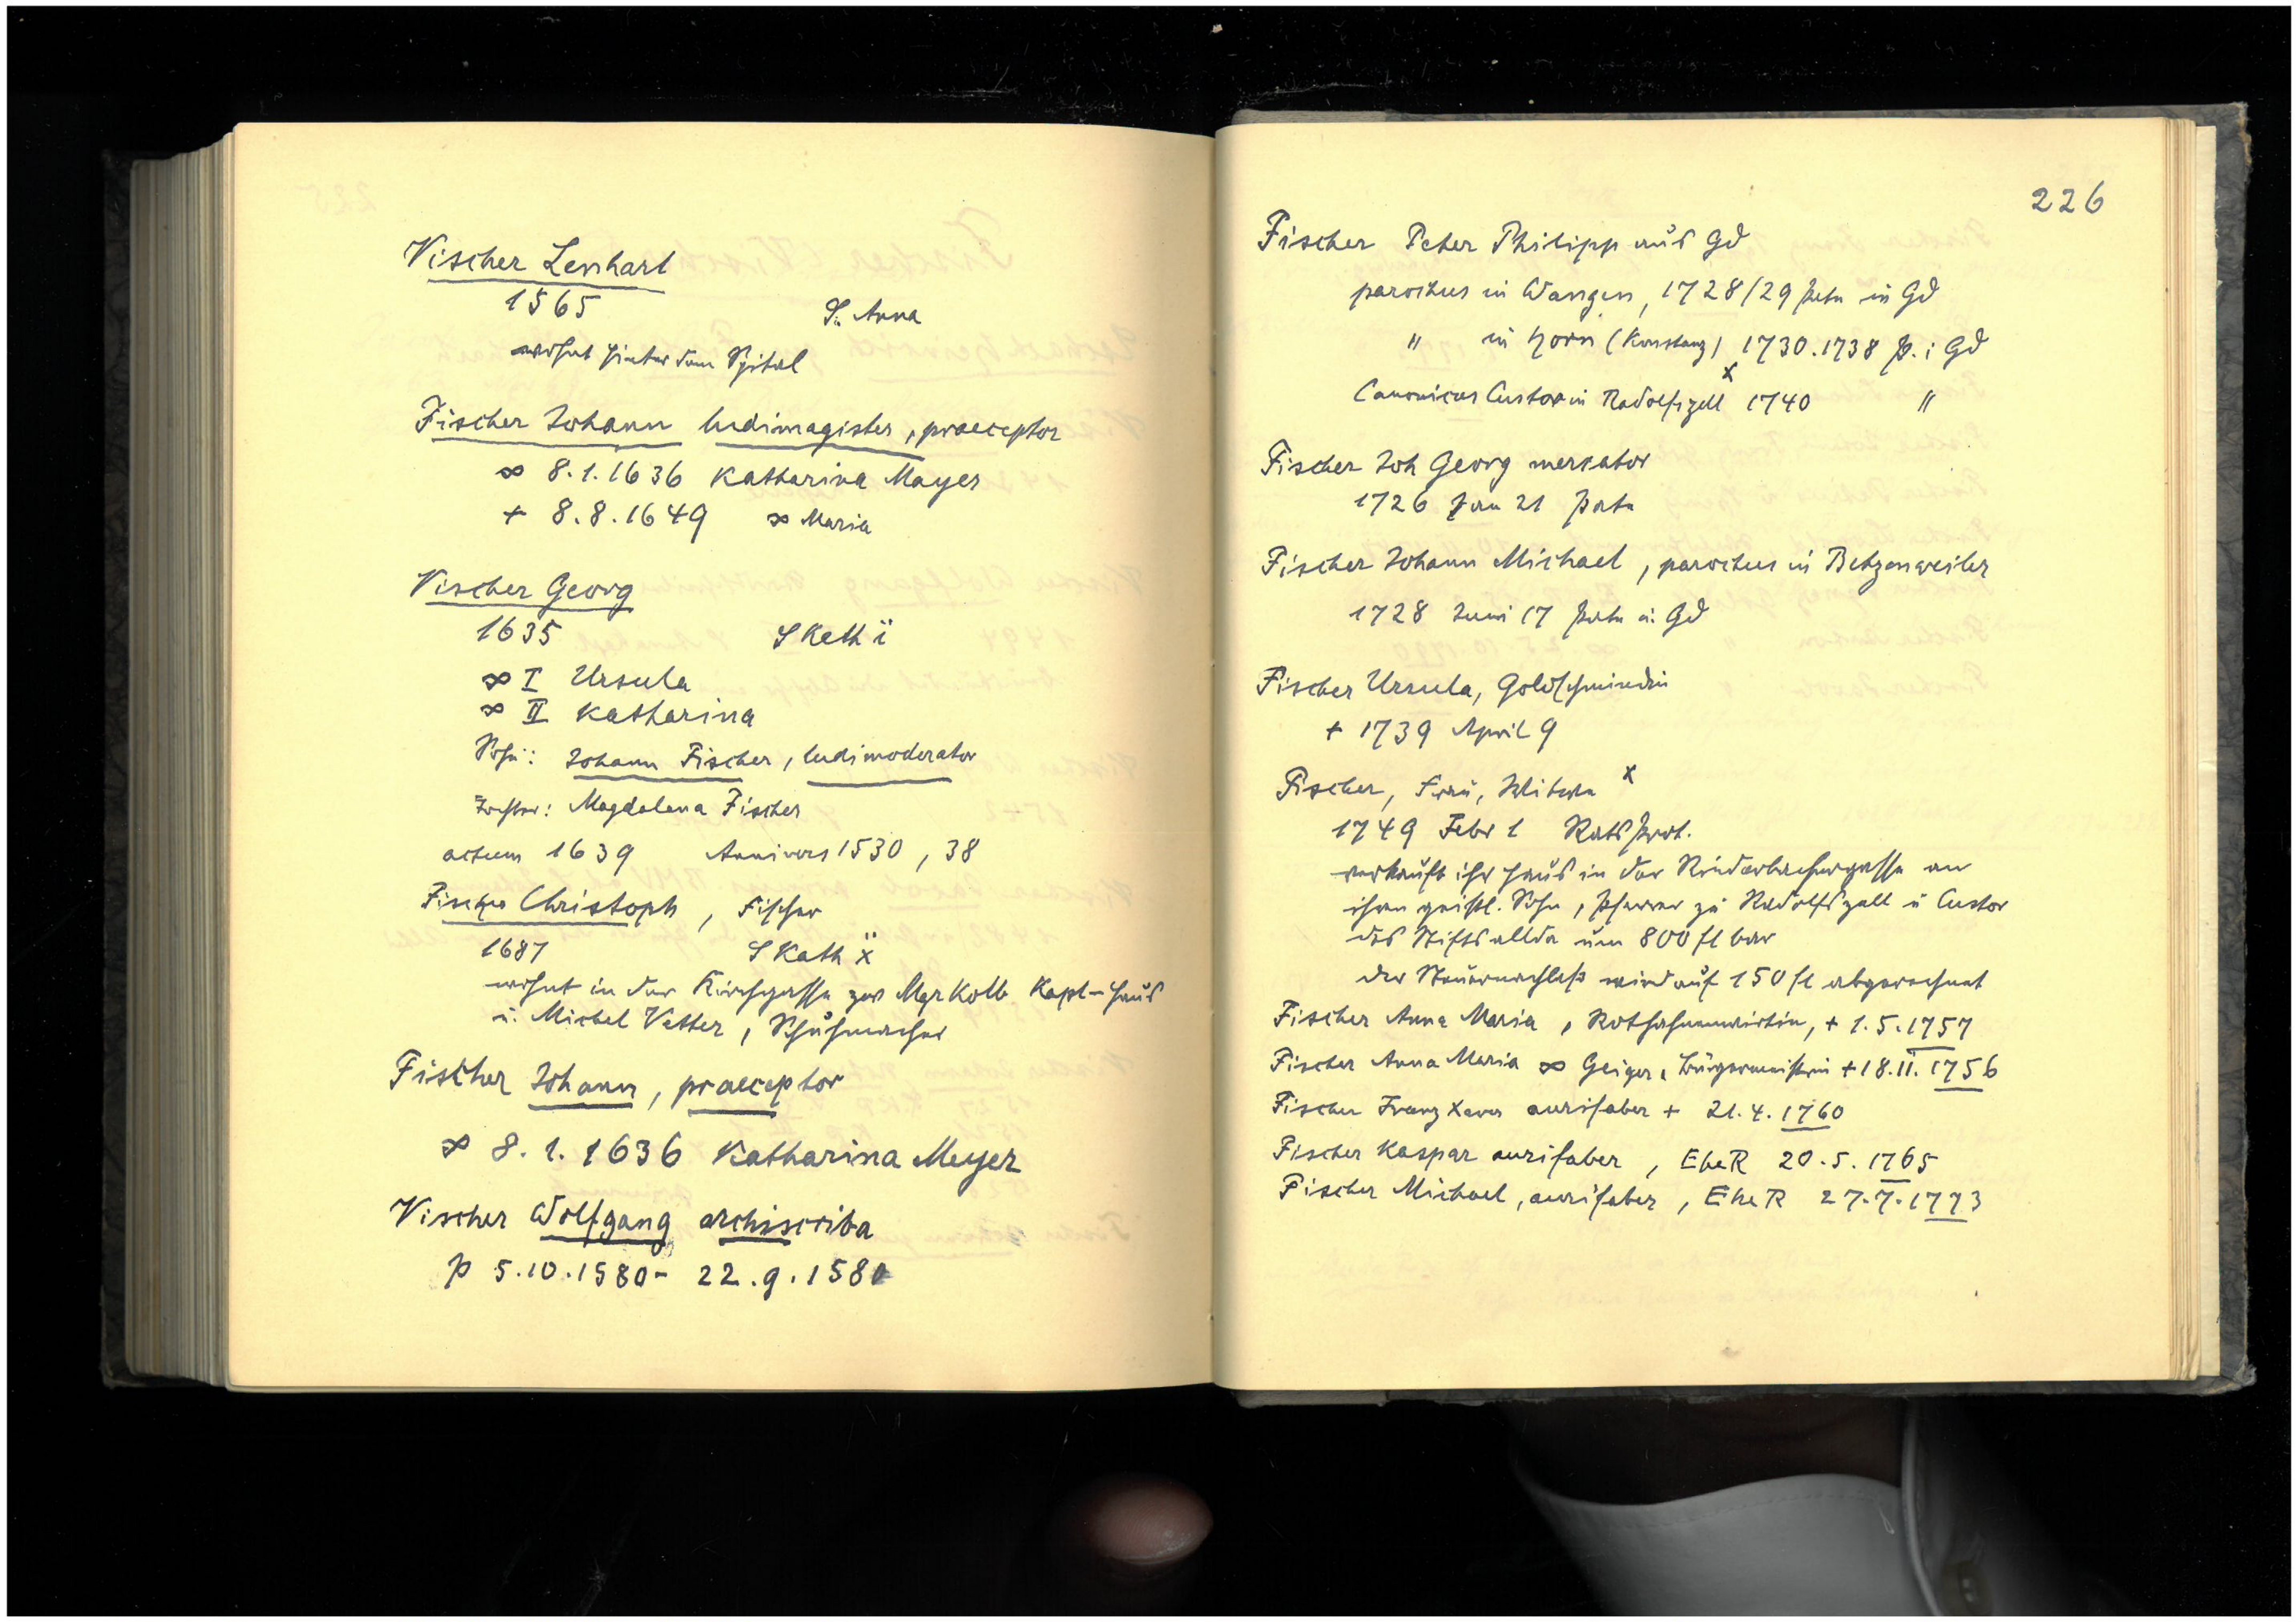 Vischer Lenhart
1565 S. Anna
wohnt hinter dem Spital
Fischer Johann ludimagister, praeceptor
∞ 8.1.1636 Katharina Mayer
+ 8.8.1649 ∞ Maria
Vischer Georg
1635 S Kath ï
∞ I Ursula
∞ II Katharina
Sohn: Johann Fischer, ludimoderator
Tochter: Magdalena Fischer
actum 1639 Annivers 1530, 38
Fischer Christoph, Fischer
1687 S Kath ẍ
wohnt in der Kirchgasse zw Kolb Kapl-Haus
u. Michel Vetter, Schuhmacher
Fischer Johann, praeceptor
∞ 8.1.1636 Katharina Meyer
Vischer Wolfgang archiscriba
p 5.10.1580 - 22.9.1581
226
Fischer Peter Philipp aus Gd
parochus in Wangen, 1728/29 Pate in Gd
" in Horn (Konstanz) 1730.1738 P. i Gd
Canonicus Custos in Radolfszell x 1740 "
Fischer Joh Georg mercator
1726 Jan 21 Pate
Fischer Johann Michael, parochus in Betzenweiler
1728 Juni 17 Pate in Gd
Fischer Ursula, Goldschmiedin
+ 1739 April 9
Fischer, Frau, Witwe x
1749 Febr 1 Ratsprot.
verkauft ihr Haus in der Rinderbachergasse an
ihren geistl. Sohn, Pfarrer zu Radolfszell u Custor
des Stifts allda um 800 fl bar
der Steuernachlaß wird auf 150 fl abgerechnet
Fischer Anna Maria, Rothahnenwirtin, + 1.5.1757
Fischer Anna Maria ∞ Geiger, Bürgermeisterin + 18.11.1756
Fischer Franz Xaver aurifaber + 21.4.1760
Fischer Kaspar aurifaber, EheR 20.5.1765
Fischer Michael, aurifaber, EheR 27.7.1773